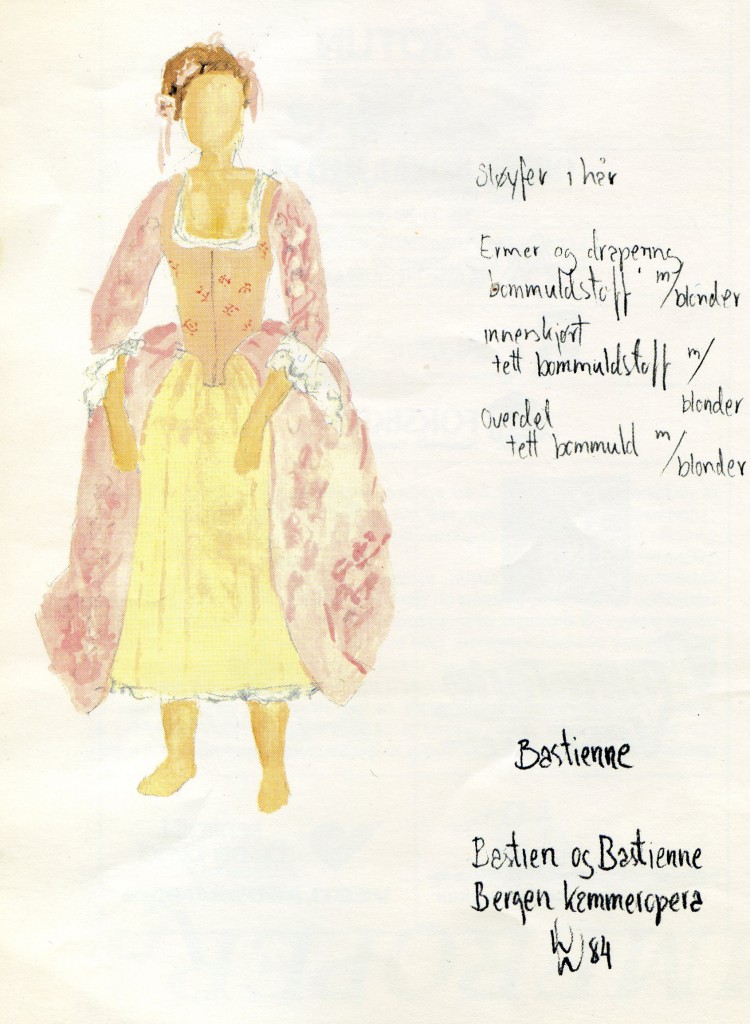 Sløyfer i hår
Ermer og drapering
bommuldstoff m/blonder
innerskjørt
tett bommuldstoff m/
blonder
overdel
tett bommuld m/blonder
Bastienne
Bastien og Bastienne
Bergen Kammeropera
84